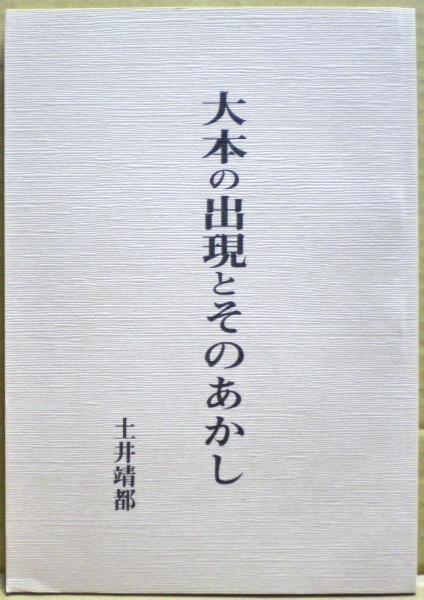 大本の出現とそのあかし
土井靖都